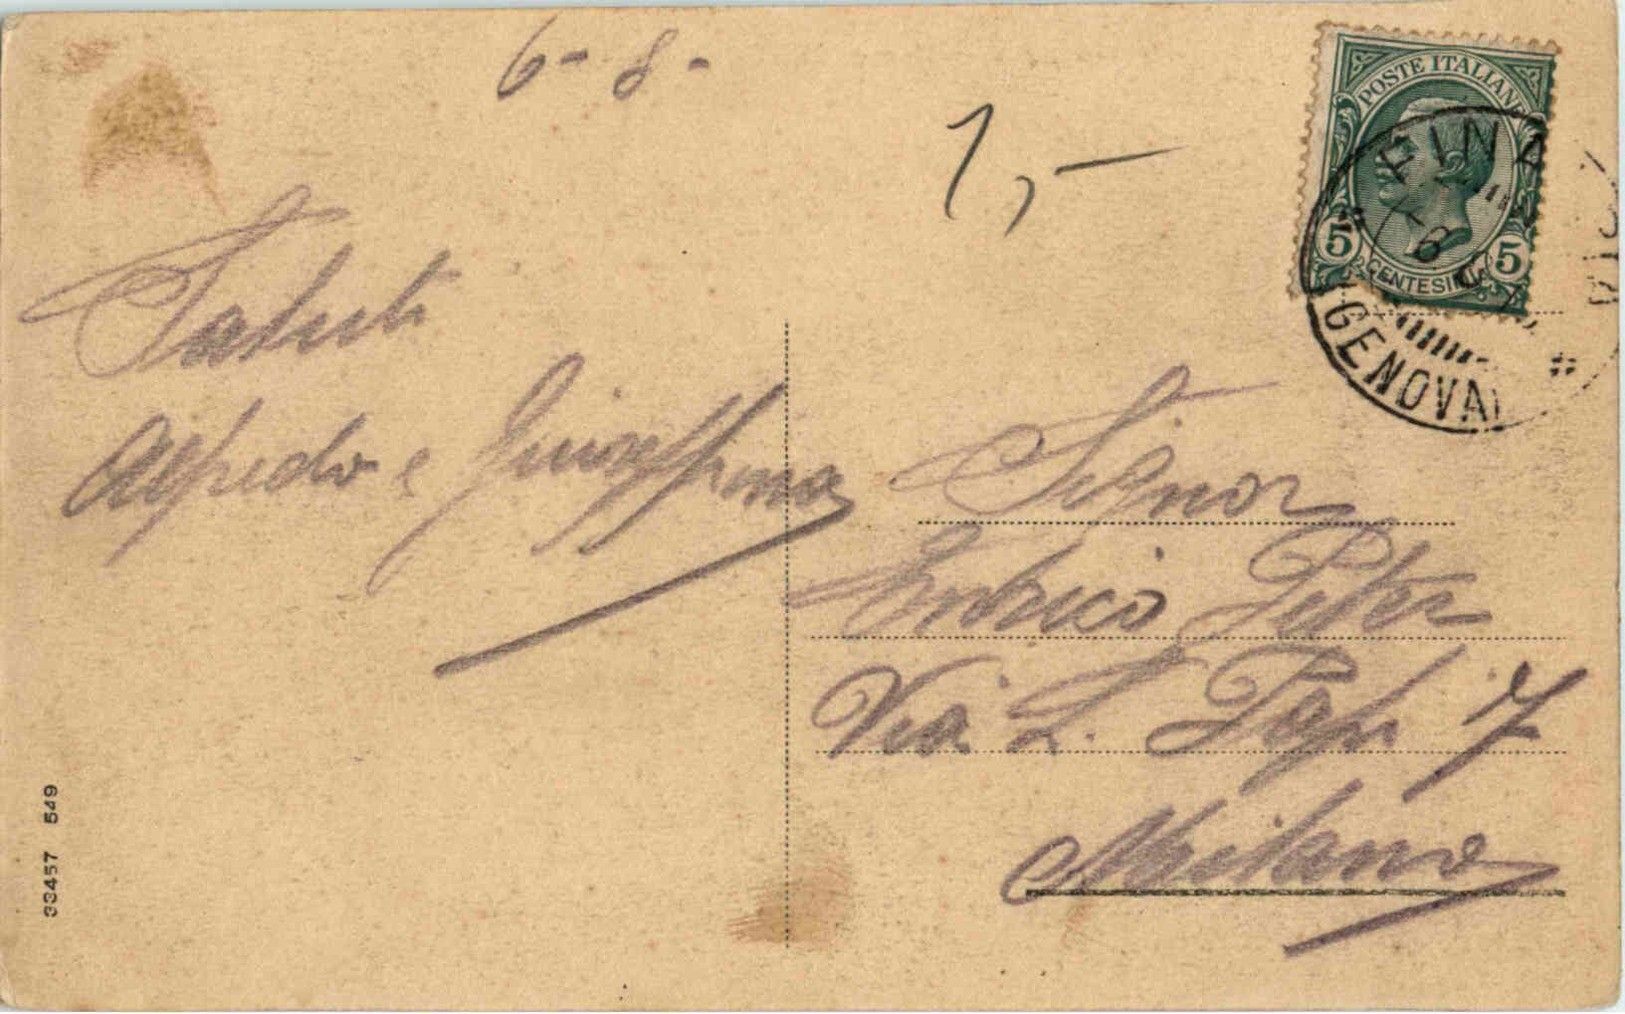 6- 8-
1,-
POSTE ITALIANE
5 5
CENTESIMI
GENOVA
Saluti
Alfredo e Giuseppina
Signor
Enrico Peter
Via L. Papi 7
Milano
33457 549